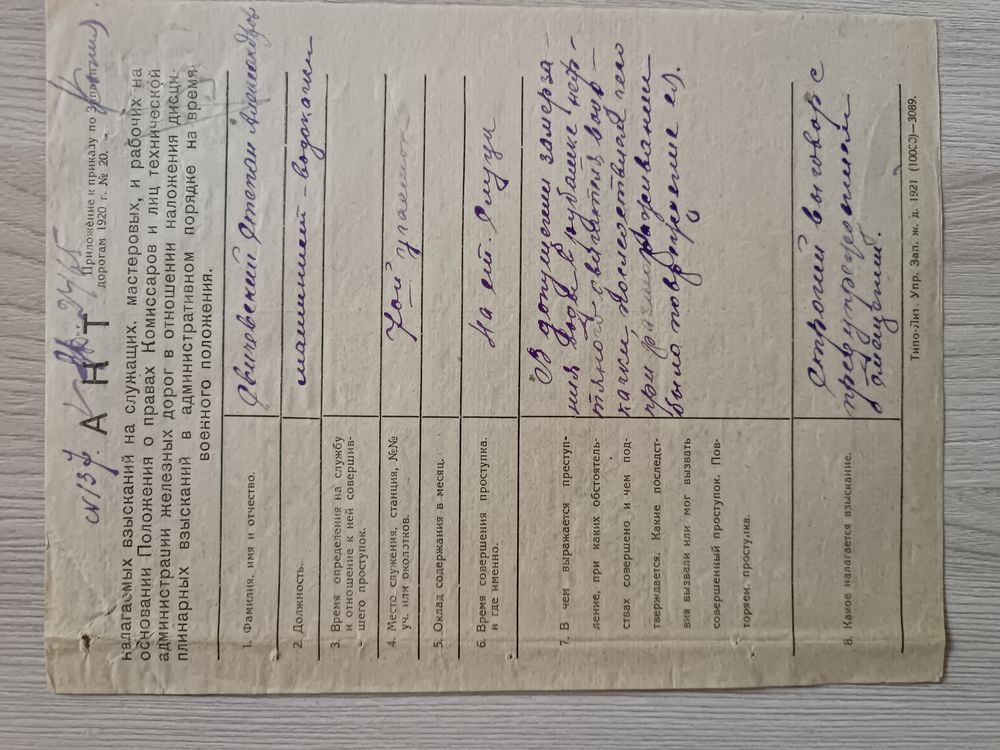 № 137.
Приложение к приказу по Западным
дорогам 1920 г. № 20.
АНТ
налагаемых взысканий на служащих, мастеровых, и рабочих на
основании Положения о правах Комиссаров и лиц технической
администрации железных дорог в отношении наложения дисци-
плинарных взысканий в административном порядке на время
военного положения.
1. Фамилия, имя и отчество.
Свиновский Степан
2. Должность.
машинист-водокачки
3. Время определения на службу
и отношение к ней совершив-
шего проступок.
4. Место служения, станция, №№
уч. или околотков.
7ой участок
5. Оклад содержания в месяц.
6. Время совершения проступка.
и где именно.
На ст. Слуцк
7. В чем выражается преступ-
ление, при каких обстоятель-
ствах совершено и чем под-
тверждается. Какие последст-
вия вызвали или мог вызвать
совершенный проступок. Пов-
торяем. проступка.
В допущении замерза-
ния воды в рубашке неф-
тяного двигателя водо-
качки последствия чего
при разогревании
было повреждение ея.
8. Какое налагается взыскание.
Строгий выговор с
предупреждением
Типо-Лит. Упр. Зап. ж. д. 1921 (10000)—3089.